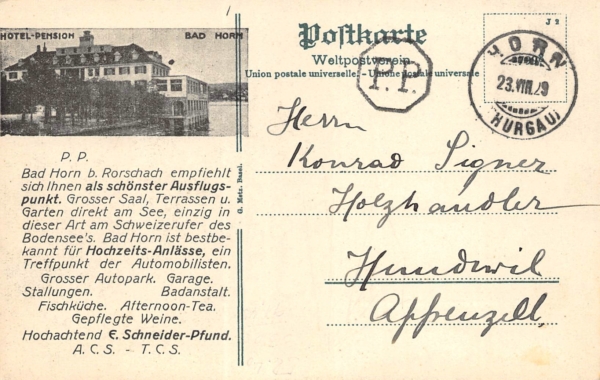 HOTEL-PENSION BAD HORN
P. P.
Bad Horn b. Rorschach empfiehlt
sich Ihnen als schönster Ausflugs-
punkt. Grosser Saal, Terrassen u.
Garten direkt am See, einzig in
dieser Art am Schweizerufer des
Bodensee's. Bad Horn ist bestbe-
kannt für Hochzeits-Anlässe, ein
Treffpunkt der Automobilisten.
Grosser Autopark. Garage.
Stallungen. Badanstalt.
Fischküche. Afternoon-Tea.
Gepflegte Weine.
Hochachtend E. Schneider-Pfund.
A. C. S. - T. C. S.
G. Metz, Basel.
Postkarte
Weltpostverein
Union postale universelle. - Unione postale universale
P.P.
J 2
HORN
23.VIII.29
(THURGAU)
Herrn
Konrad Signer
Holzhandler
Hundwil
Appenzell